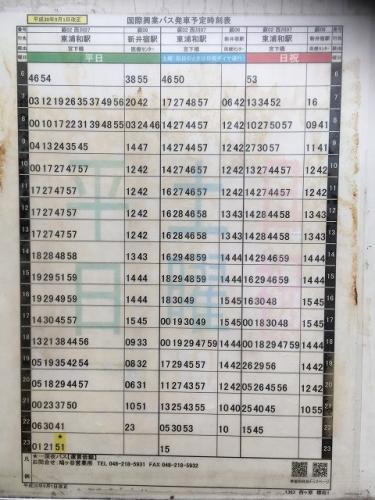 平成30年9月1日改正 国際興業バス発車予定時刻表
東浦和駅 新井宿駅 東浦和駅 新井宿駅 東浦和駅 新井宿駅
宮下橋 医療センター 宮下橋 医療センター 宮下橋 医療センター
平日 日祝
6 46 54 38 55 46 50 53 6
7 03 12 19 26 35 37 49 56 20 42 17 27 48 57 06 42 13 34 52 16 7
8 00 10 17 22 31 39 48 55 03 24 46 14 27 44 57 13 42 10 27 50 57 09 41 8
9 04 13 24 35 45 14 47 14 27 44 57 12 42 27 30 57 11 41 9
10 00 17 27 47 57 12 42 14 27 47 57 12 42 13 27 44 57 12 42 10
11 17 27 47 57 12 42 14 27 46 57 12 42 14 27 44 57 12 42 11
12 17 27 47 57 12 42 16 28 46 58 13 43 16 28 44 58 13 43 12
13 17 27 47 57 12 42 16 28 46 58 13 43 14 28 44 58 13 43 13
14 18 28 48 58 13 43 16 29 48 59 14 44 16 29 46 59 14 44 14
15 19 29 51 59 14 44 18 29 48 59 14 44 18 29 48 59 14 44 15
16 19 29 49 59 14 44 18 30 49 15 45 16 30 48 15 45 16
17 14 30 45 57 15 45 00 19 30 49 15 45 00 18 30 48 15 45 17
18 13 21 38 44 56 09 33 00 19 29 47 59 14 44 00 18 29 47 59 14 44 18
19 05 19 35 42 54 08 32 17 29 45 57 14 42 26 29 56 14 42 19
20 05 18 29 44 57 06 31 11 27 43 57 12 42 05 26 45 56 12 42 20
21 00 23 37 50 10 51 13 25 43 55 10 40 25 40 45 10 55 21
22 06 30 41 23 05 30 53 15 45 22
23 01 21 ★51 15 23
凡例 ★…深夜バス【運賃倍額】
お問合せ:鳩ヶ谷営業所 TEL 048-218-5931 FAX 048-218-5932
平成30年9月1日改正